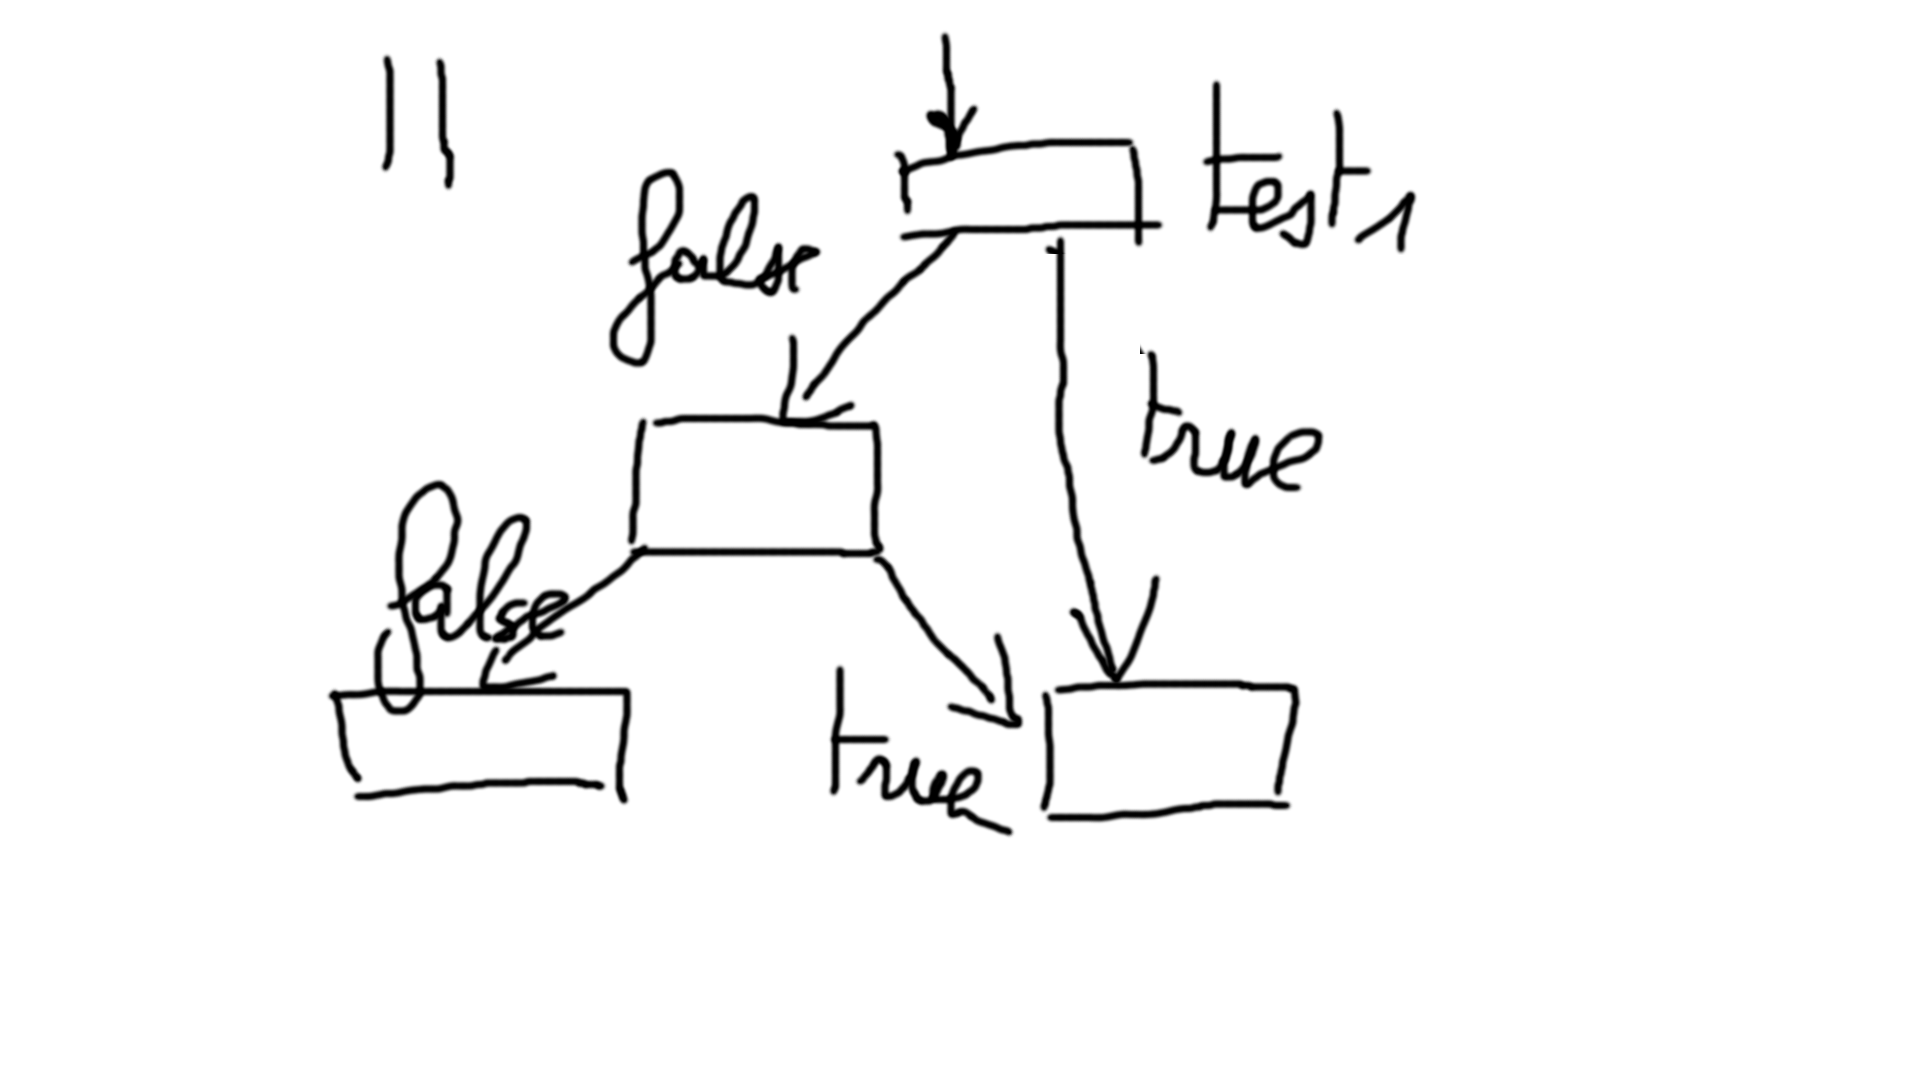 ||
test 1
false
true
false
true